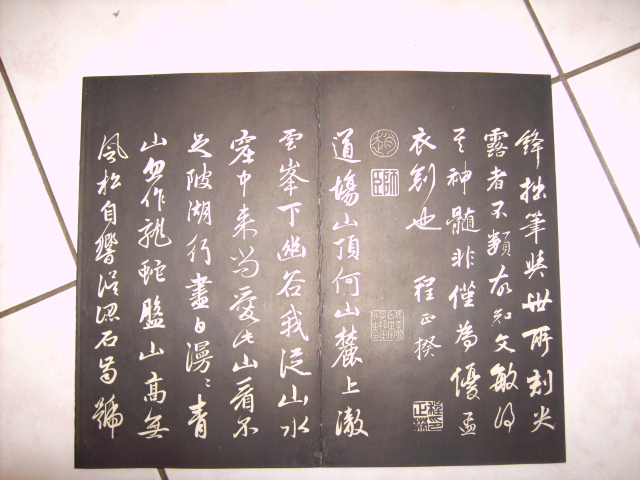 鋒拙筆與世所刻尖
露者不類故知文敏得
其神髓非僅為優孟
衣冠也 程正揆
道場山頂何山麓上澈
雲峯下幽谷我從山水
窟中来尚愛此山看不
足陂湖行盡白漫漫青
山忽作龍蛇盤山高無
風松自響誤認石齒號